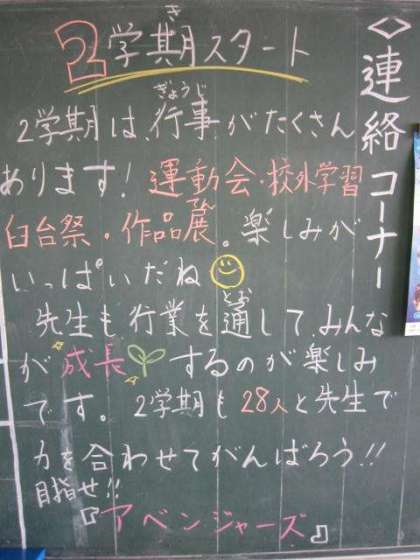 <連絡コーナー>
2学期スタート
2学期は行事がたくさん
あります!運動会・校外学習
臼台祭・作品展。楽しみが
いっぱいだね
先生も行業を通してみんな
が成長するのが楽しみ
です。2学期も28人と先生で
力を合わせてがんばろう!!
目指せ!!
『アベンジャーズ』